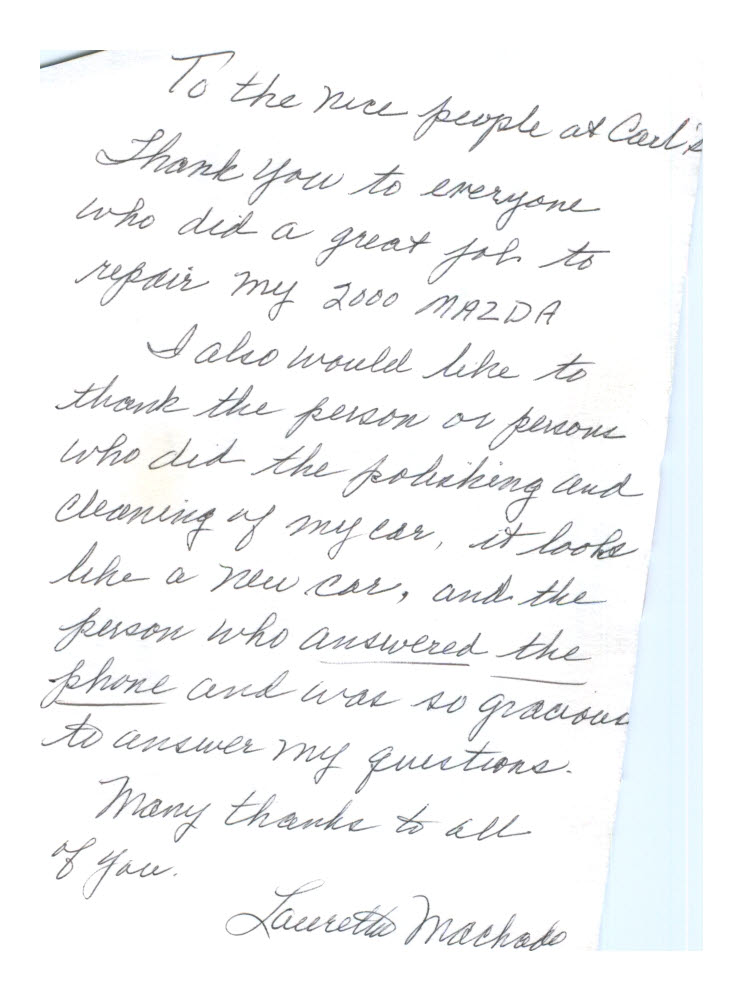 To the nice people at Carl's
Thank You to everyone
who did a great job to
repair my 2000 MAZDA
I also would like to
thank the person or persons
who did the polishing and
cleaning of my car, it looks
like a new car, and the
person who answered the
phone and was so gracious
to answer my questions.
Many thanks to all
of you.
Lauretta Machado